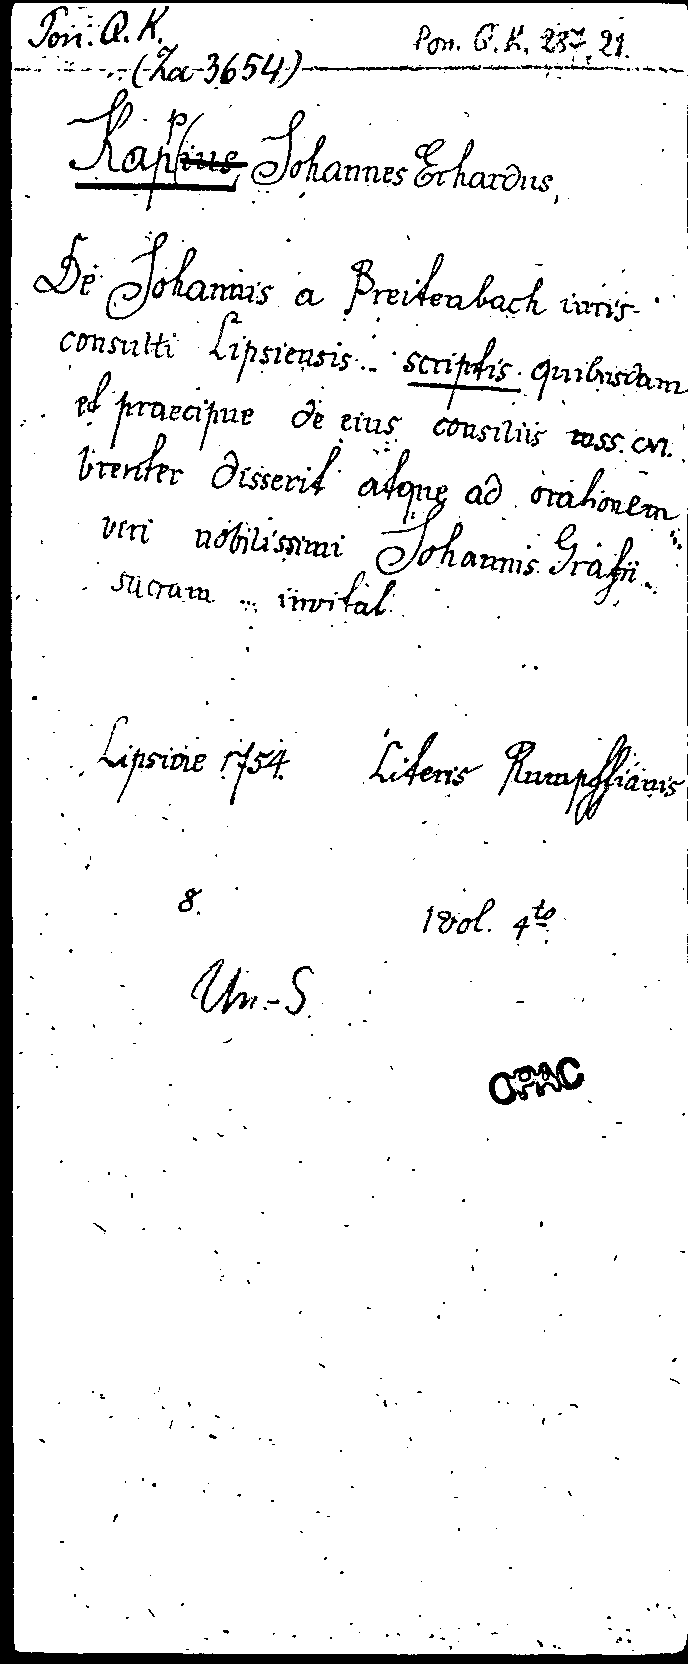 Pon. Q. K. Pon. Q. K. 237, 21.
(Za 3654)
Kapp(ius, Johannes Erhardus,
De Johannis a Breitenbach iuris
consulti Lipsiensis .. scriptis quibusdam
et praecipue de eius consiliis mss.
breviter disserit atque ad orationem
viri nobilissimi Johannis
sacram ... invitat
Lipsiae 1754. Literis Rumpffianis
8. 1 vol. 4to
Un.-S.
OPAC